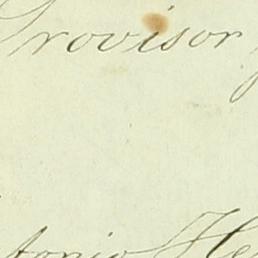 Provisor
tonio He